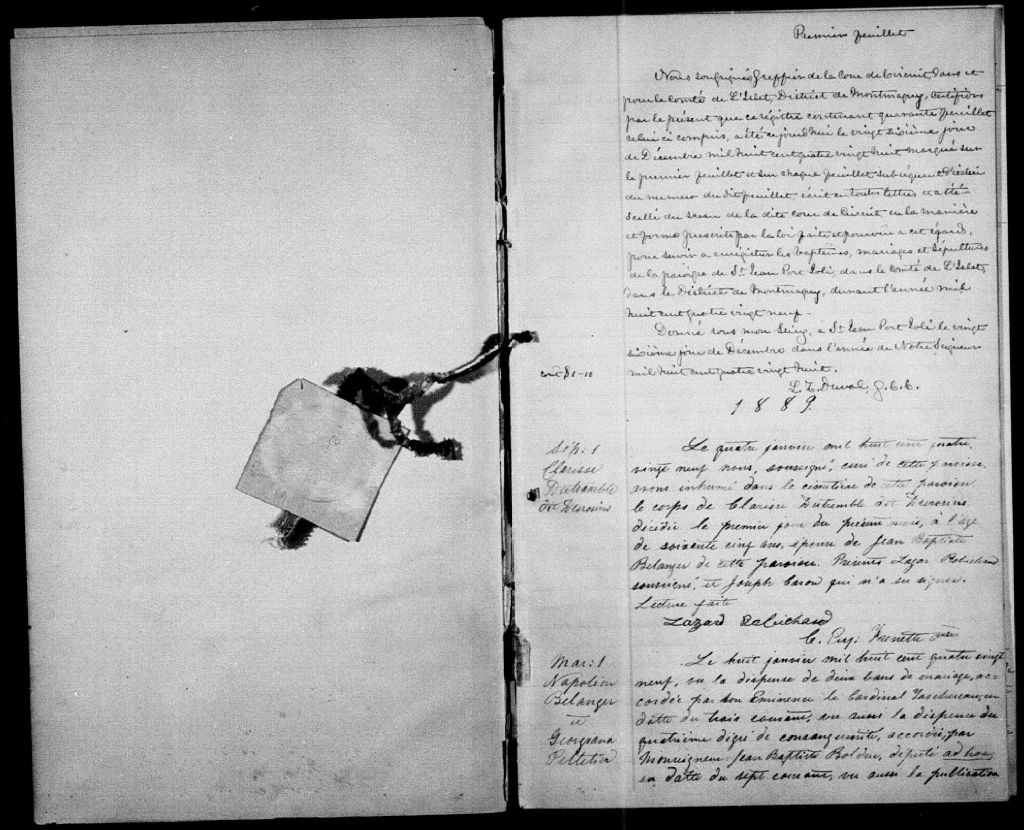 Premier feuillet
Nous soussigné Greffier de la Cour de Circuit, dans et
pour le Comté de L'Islet, District de Montmagny, certifions
par le présent que ce régistre contenant quarante feuillet
celui ci compris, a été ce jourd'hui le vingt sixième jour
de Décembre mil huit cent quatre vingt huit marqué sur
le premier feuillet et sur chaque feuillet subséquent
du numero du dit feuillet, écrit en toutes lettres et a été
Scellé du sceau de la dite cour de Circuit, en la manière
et forme prescrite par la loi faite et pourvue a cet égard,
pour servir a enrégistrer les baptêmes, mariages et sépultures
de la paroisse de St Jean Port Joli, dans le Comté de L'Islet,
dans le District de Montmagny, durant l'année mil
huit cent quatre vingt neuf.
Donné sous mon Seing, a St Jean Port Joli le vingt
sixième jour de Décembre dans l'année de Notre Seigneur
mil huit cent quatre vingt huit.
L. Z. Duval, G.C.C.
1889.
Sép: 1
Clarisse
Dutremble
dit Desrosiers
Le quatre janvier mil huit cent quatre
vingt neuf nous, soussigné, curé de cette paroisse
avons inhumé dans le cimetière de cette paroisse
le corps de Clarisse Dutremble dit Desrosiers
décédée le premier jour du présent mois, à l'age
de soixante cinq ans, épouse de Jean Baptiste
Belanger de cette paroisse. Présents Lazar Robichaud
soussigné, et Joseph Caron qui n'a su signer.
Lecture faite
Lazard Robichaud
C. Eug: Frenette Ptre
Mar: 1
Napoléon
Bélanger
et
Georgiana
Pelletier
Le huit janvier mil huit cent quatre vingt
neuf, vu la dispense de deux bans de mariage, ac-
cordée par son Eminence le Cardinal Taschereau, en
datte du trois courant, vu aussi la dispense du
quatrième dégré de consanguinité, accordée, par
Monseigneur Jean Baptiste Bolduc, député ad hoc,
en datte du sept courant, vu aussi la publication